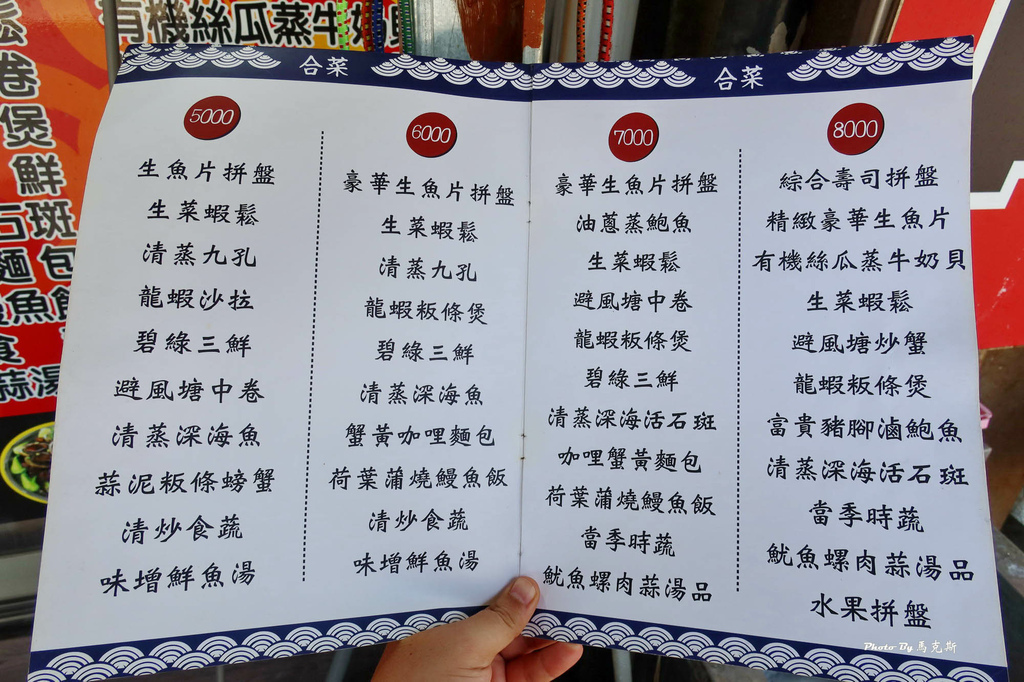 有機絲瓜蒸牛奶貝
鬆
卷
煲
鮮
石斑
麵包
魚飯
食
蒜湯
合菜
合菜
5000
生魚片拼盤
生菜蝦鬆
清蒸九孔
龍蝦沙拉
碧綠三鮮
避風塘中卷
清蒸深海魚
蒜泥粄條螃蟹
清炒食蔬
味增鮮魚湯
6000
豪華生魚片拼盤
生菜蝦鬆
清蒸九孔
龍蝦粄條煲
碧綠三鮮
清蒸深海魚
蟹黃咖哩麵包
荷葉蒲燒鰻魚飯
清炒食蔬
味增鮮魚湯
7000
豪華生魚片拼盤
油蔥蒸鮑魚
生菜蝦鬆
避風塘中卷
龍蝦粄條煲
碧綠三鮮
清蒸深海活石斑
咖哩蟹黃麵包
荷葉蒲燒鰻魚飯
當季時蔬
魷魚螺肉蒜湯品
8000
綜合壽司拼盤
精緻豪華生魚片
有機絲瓜蒸牛奶貝
生菜蝦鬆
避風塘炒蟹
龍蝦粄條煲
富貴豬腳滷鮑魚
清蒸深海活石斑
當季時蔬
魷魚螺肉蒜湯品
水果拼盤
Photo By 馬克斯